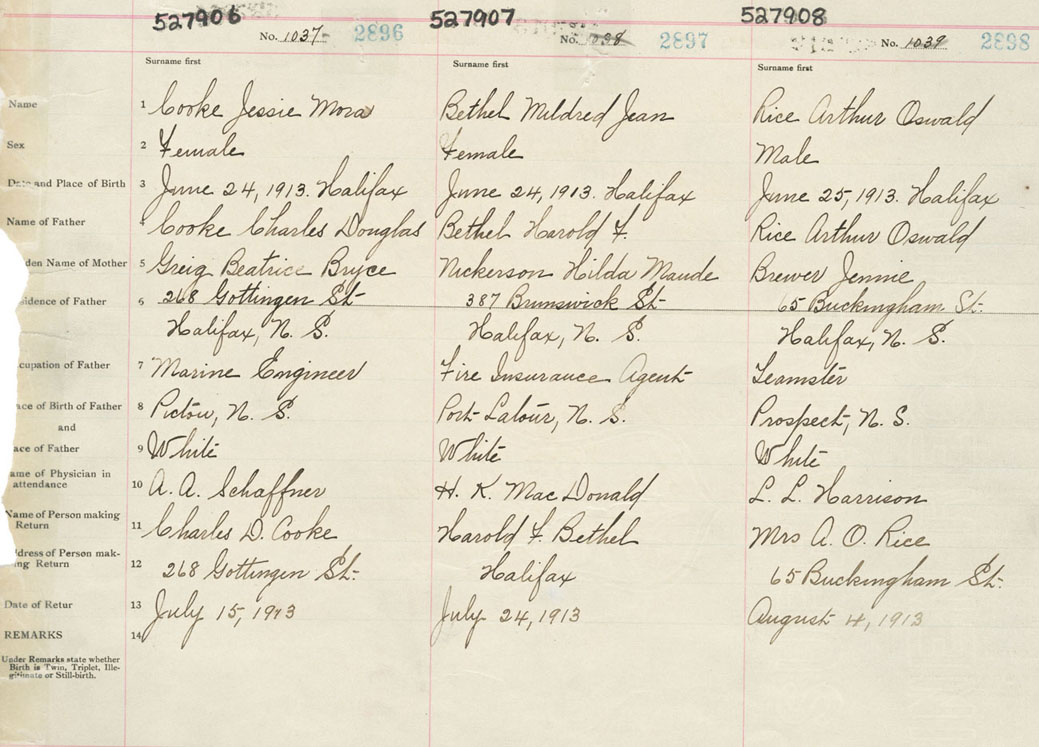 527906 527907 527908
No. 1037 2896 No. 1038 2897 No. 1039 2898
Surname first Surname first Surname first
Name 1 Cooke Jessie Mora Bethel Mildred Jean Rice Arthur Oswald
Sex 2 Female Female Male
Date and Place of Birth 3 June 24, 1913. Halifax June 24, 1913. Halifax June 25, 1913. Halifax
Name of Father 4 Cooke Charles Douglas Bethel Harold F. Rice Arthur Oswald
den Name of Mother 5 Greig Beatrice Bryce Nickerson Hilda Maude Brewer Jennie
sidence of Father 6 268 Gottingen St. 387 Brunswick St. 65 Buckingham St.
Halifax, N. S. Halifax, N. S. Halifax, N. S.
cupation of Father 7 Marine Engineer Fire Insurance Agent Teamster
ace of Birth of Father 8 Pictou, N. S. Port Latour, N. S. Prospect, N. S.
and
ace of Father 9 White White White
ame of Physician in
attendance 10 A. A. Schaffner H. K. MacDonald L. L. Harrison
Name of Person making
Return 11 Charles D. Cooke Harold F. Bethel Mrs A. O. Rice
ddress of Person mak-
ing Return 12 268 Gottingen St. Halifax 65 Buckingham St.
Date of Retur 13 July 15, 1913 July 24, 1913 August 4, 1913
REMARKS 14
Under Remarks state whether
Birth is Twin, Triplet, Ille-
gitimate or Still-birth.